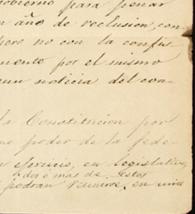 gobierno para penar
un año de reclusion, con
pero no con la confis
mento por el mismo
cun noticia del con
la Constitucion por
no poder de la fede
en ejercicio, en legislativo,
dos ó más de estos
podran reunirse en una